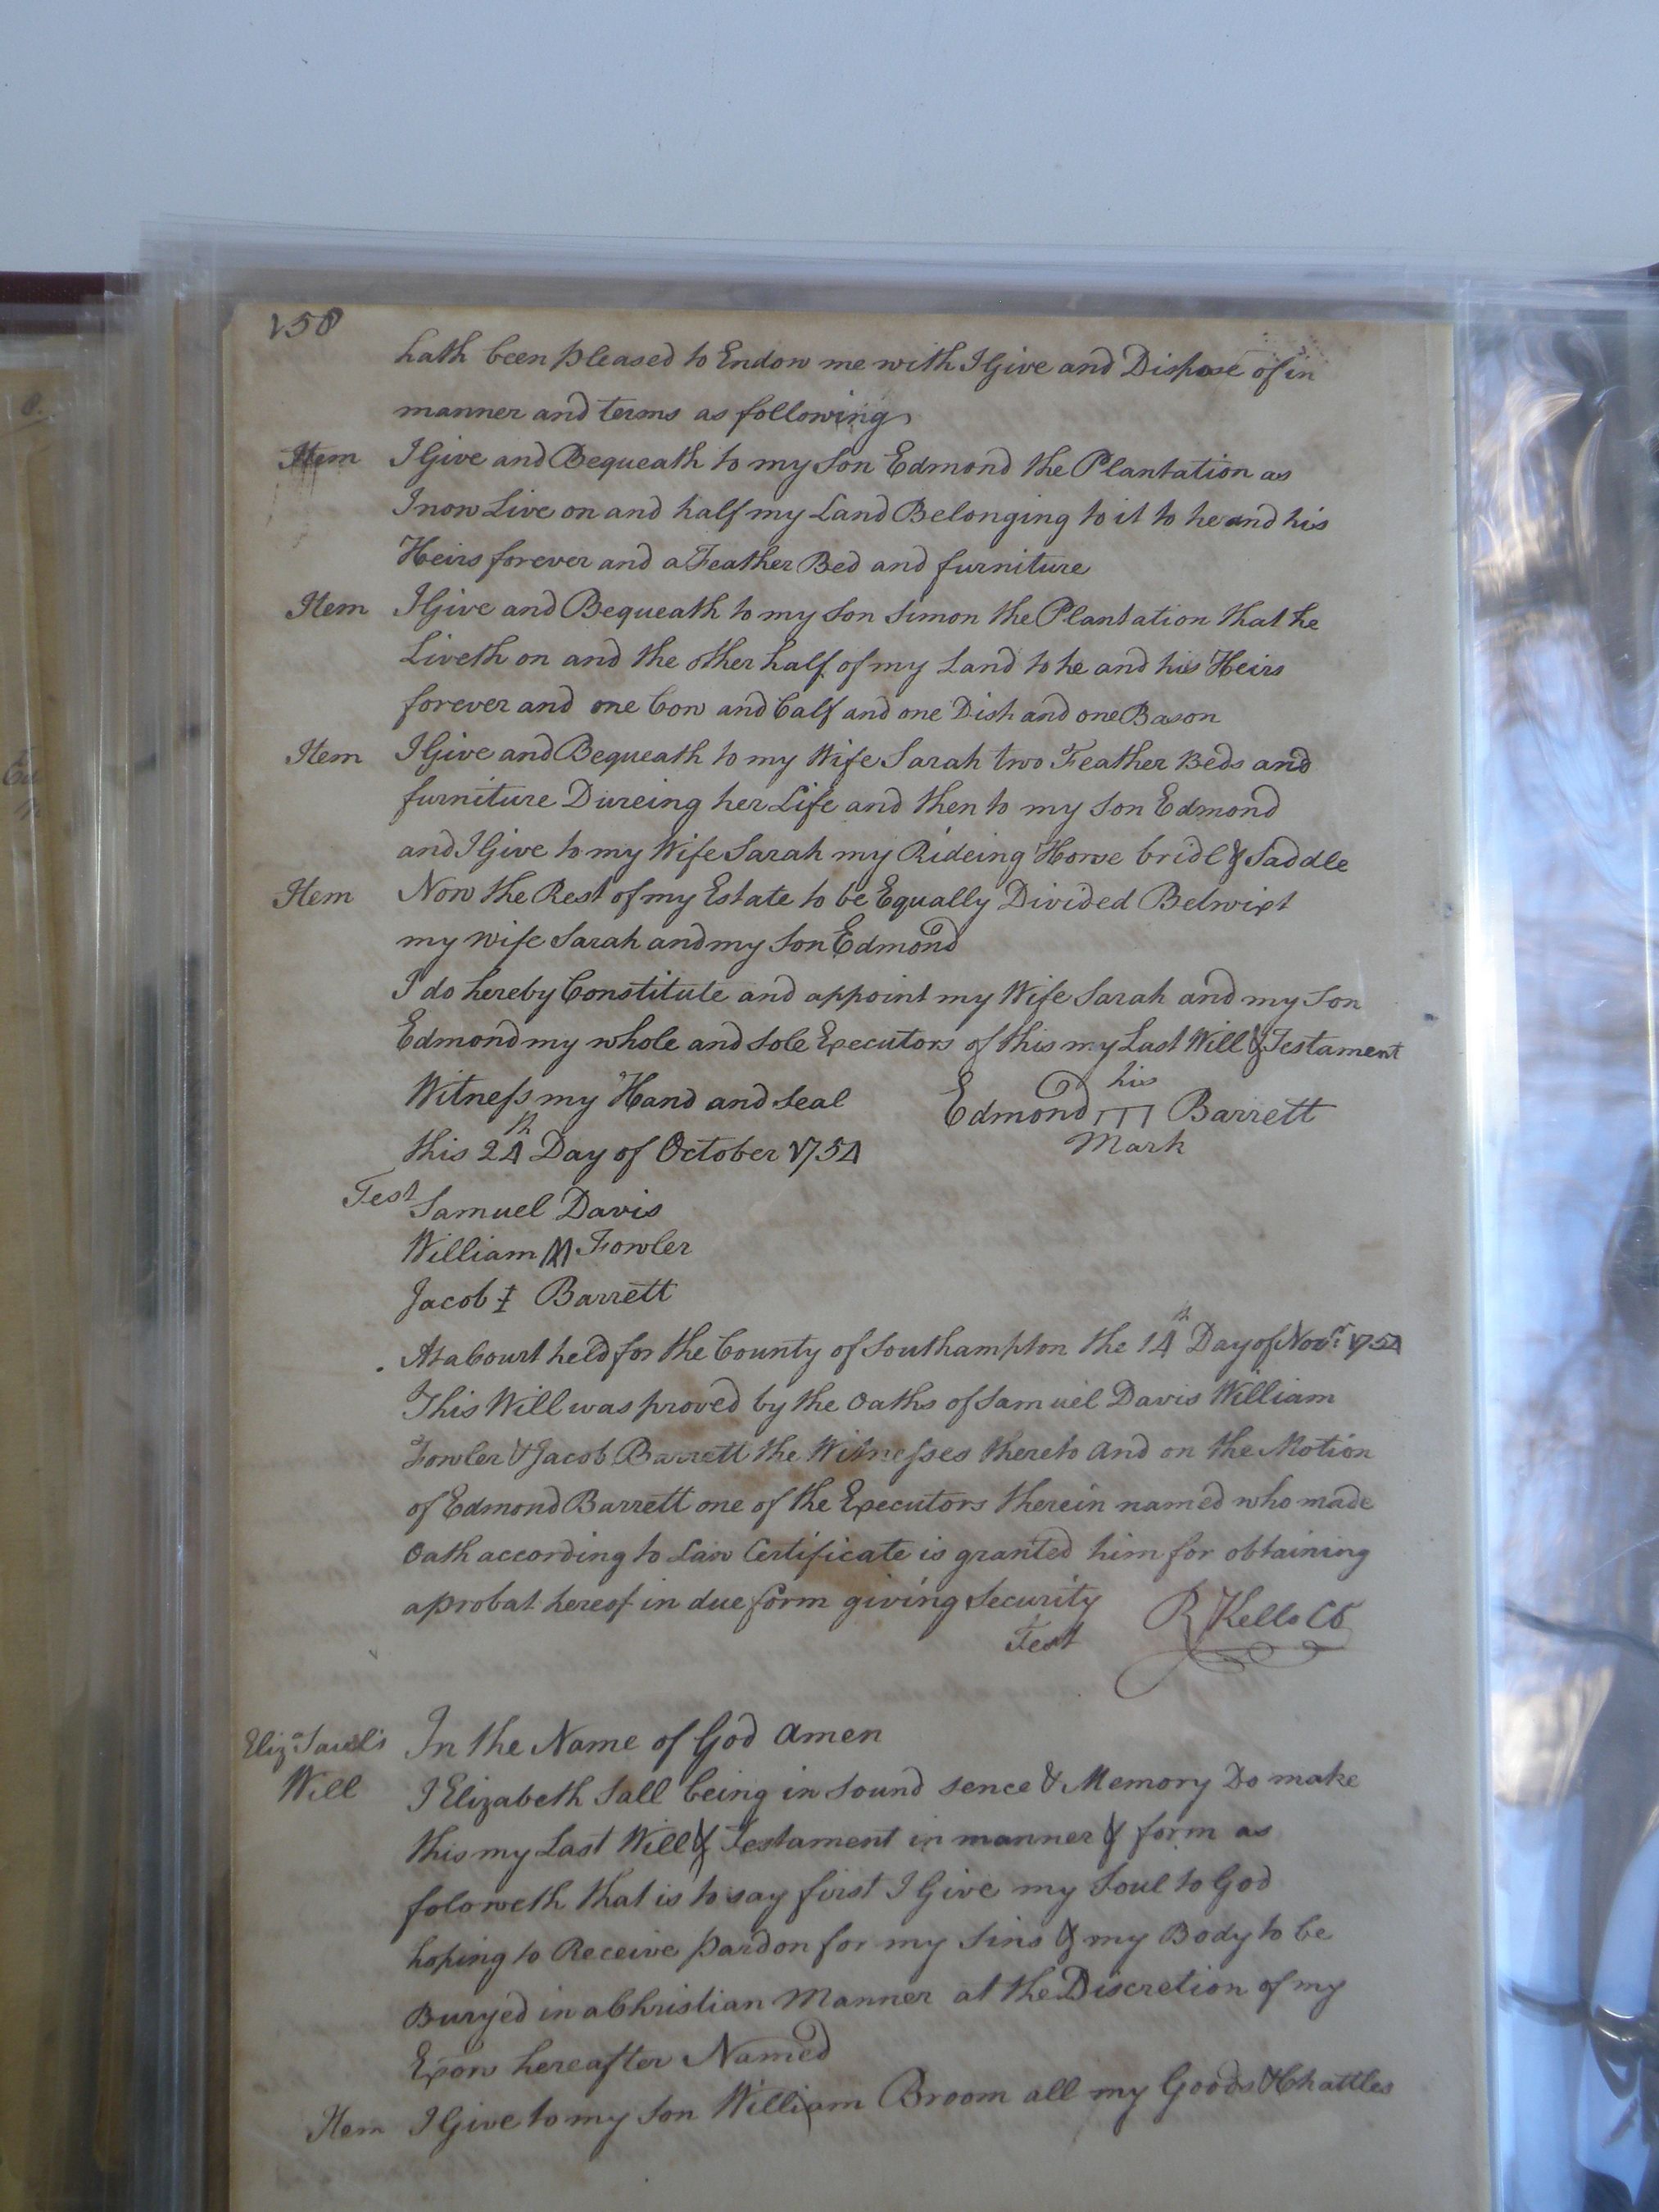 158
hath been pleased to Endow me with I Give and Dispose of in
manner and terms as following
Item I Give and Bequeath to my Son Edmond the Plantation as
I now Live on and half my Land Belonging to it to he and his
Heirs forever and a Feather Bed and furniture
Item I Give and Bequeath to my Son Simon the Plantation that he
Liveth on and the other half of my Land to he and his Heirs
forever and one Cow and Calf and one Dish and one Bason
Item I Give and Bequeath to my Wife Sarah two Feather Beds and
furniture Dureing her Life and then to my Son Edmond
and I Give to my Wife Sarah my Rideing Horse bridl & Saddle
Item Now the Rest of my Estate to be Equally Divided Betwixt
my wife Sarah and my Son Edmond
I do hereby Constitute and appoint my Wife Sarah and my Son
Edmond my whole and Sole Executors of this my Last Will & Testament
Witness my Hand and Seal
his
Edmond m Barrett
Mark
this 24th Day of October 1754
Test Samuel Davis
William M Fowler
Jacob ‡ Barrett
At a Court held for the County of Southampton the 14th Day of Novr. 1754
This Will was proved by the Oaths of Samuel Davis William
Fowler & Jacob Barrett the Witnesses thereto and on the Motion
of Edmond Barrett one of the Executors therein named who made
Oath according to Law Certificate is granted him for obtaining
a probat hereof in due form giving Security
Test R Kello CC
Eliza Saul's In the Name of God Amen
Will I Elizabeth Sall being in Sound Sence & Memory Do make
this my Last Will & Testament in manner & form as
foloweth that is to say first I Give my Soul to God
hoping to Receive pardon for my Sins & my Body to be
Buryed in a Christian Manner at the Discretion of my
Exors hereafter Named
Item I Give to my Son William Broom all my Goods & Chattles